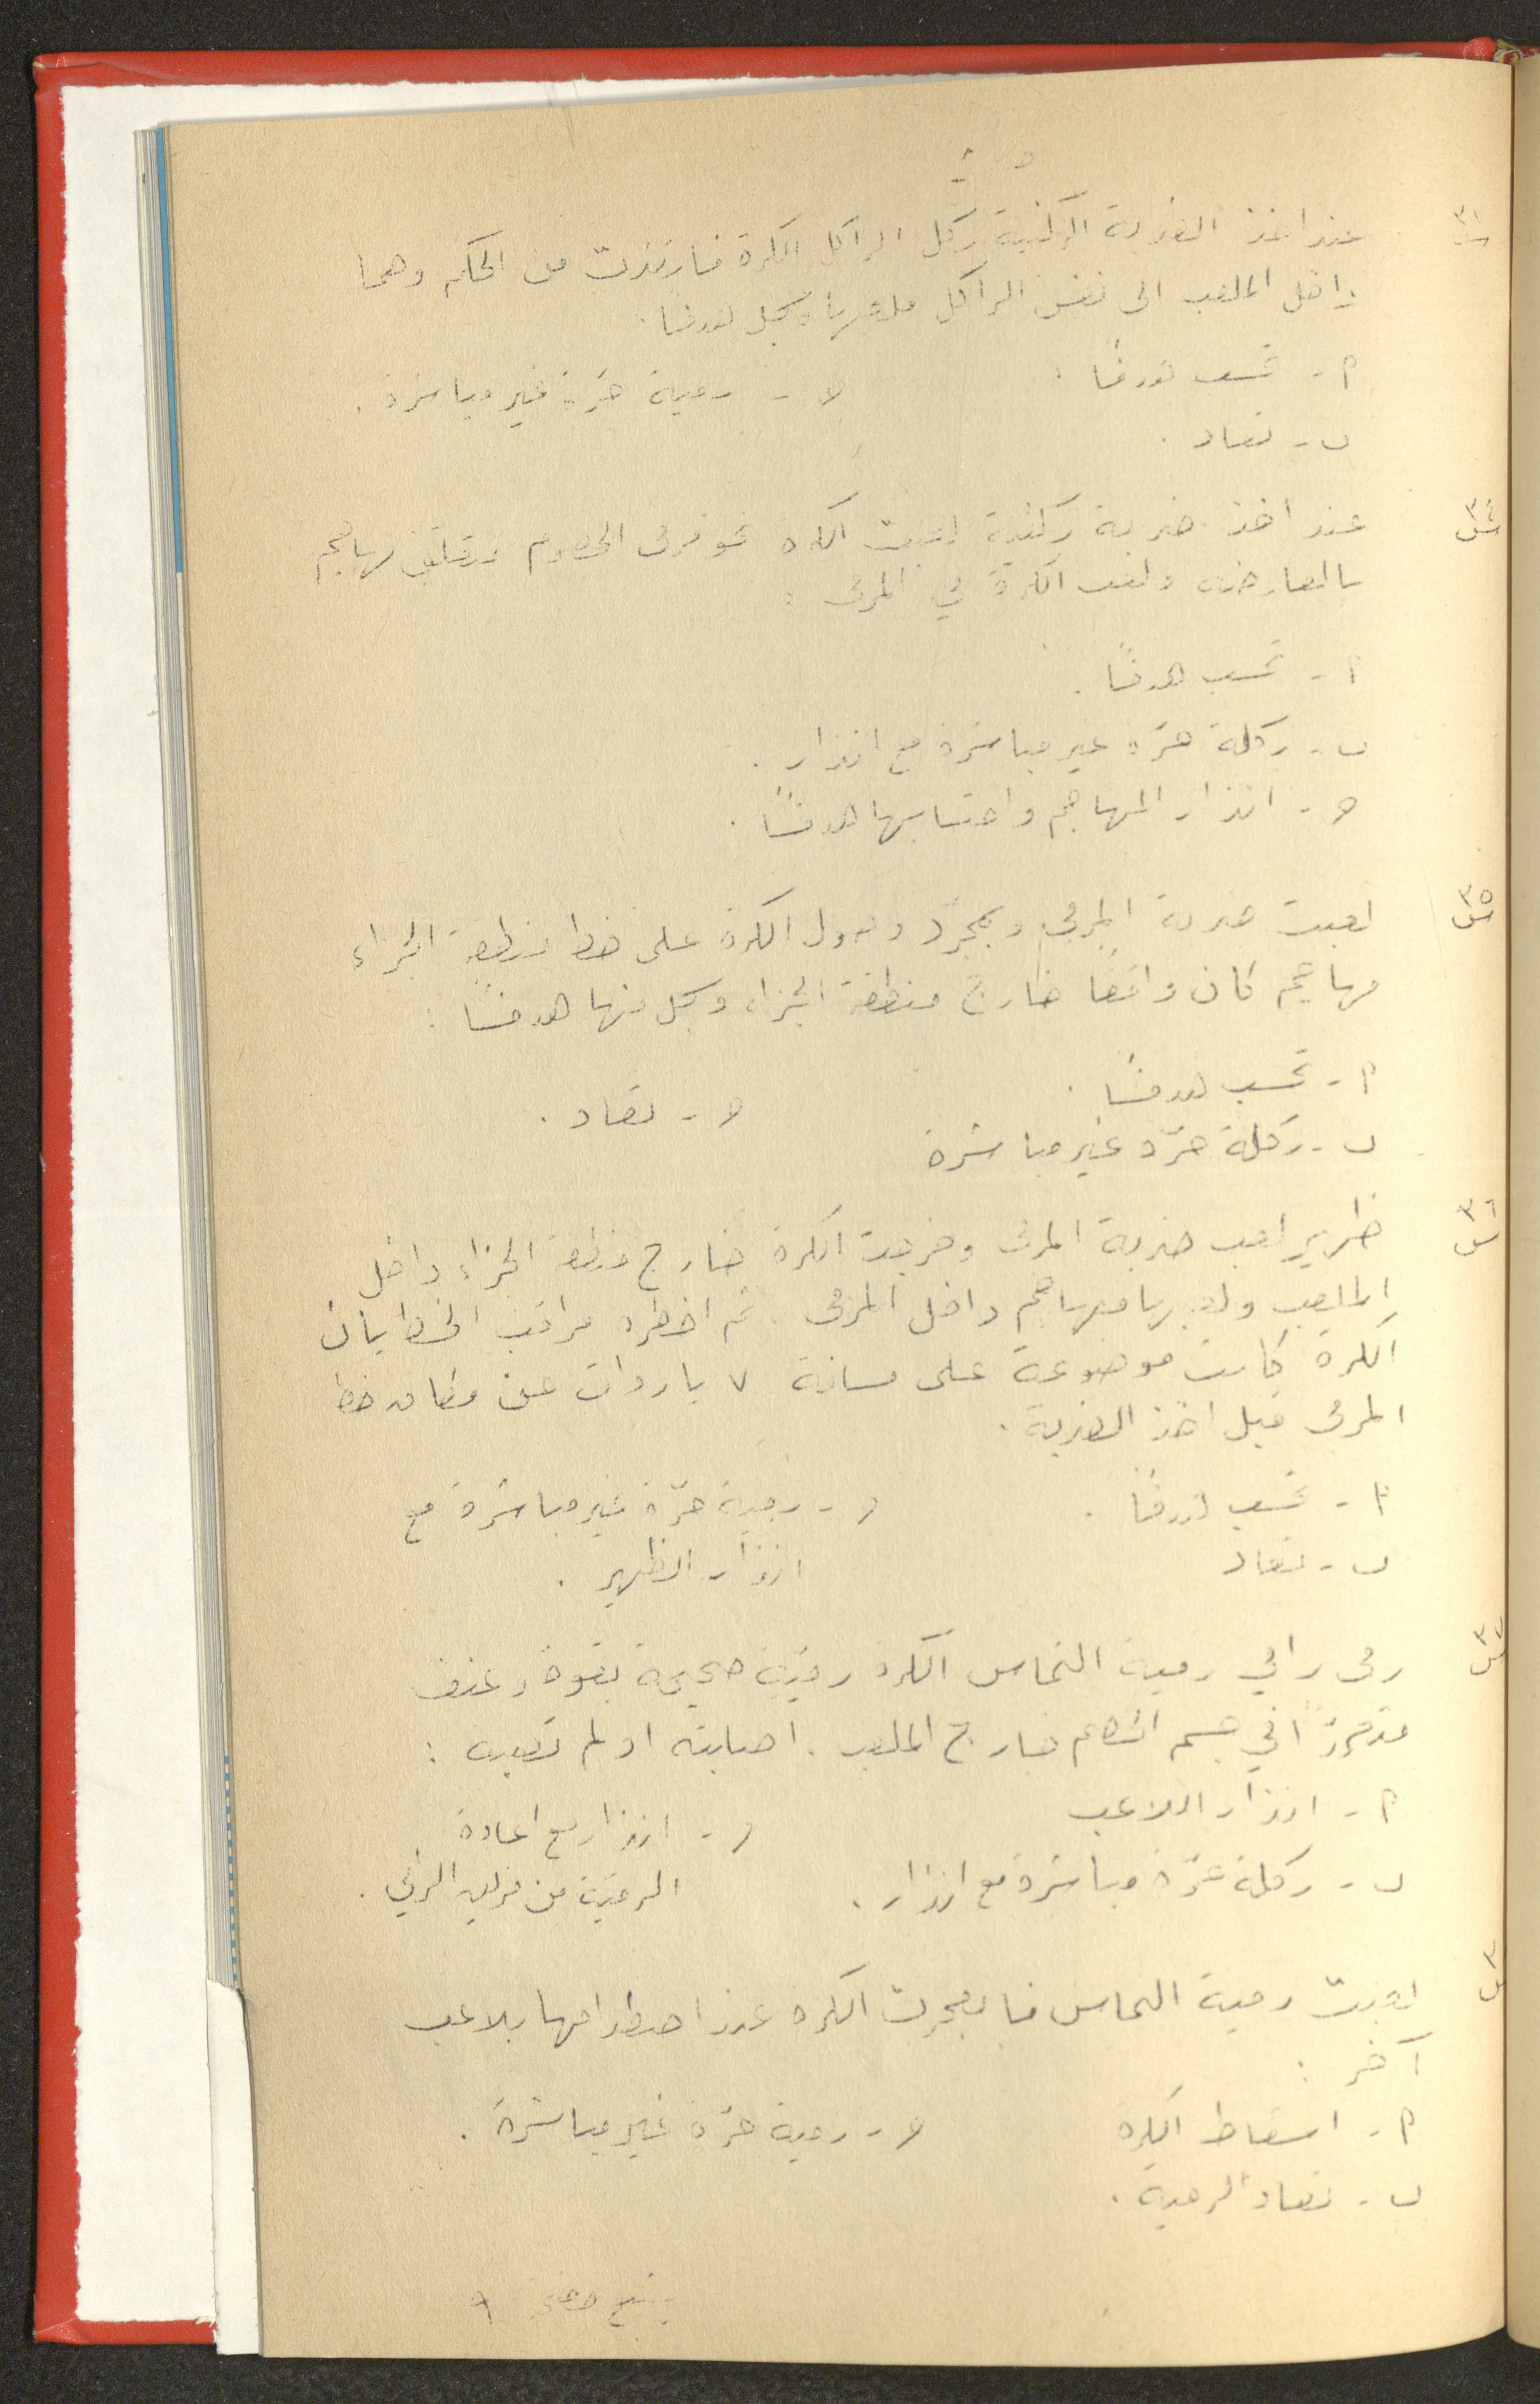 عند اخذ الضربة الركنية ركل الراكل الكرة فارتدت من الحكم وهما
داخل الملعب الى نفس الراكل فلعبها وسجل هدفًا.
٢ - تحسب هدفًا.
ح - رمية حرّة غير مباشرة.
ب - تعاد.
س ٣٤
عند اخذ ضربة ركنية لعبت الكرة نحو مرمى الخصوم وتعلق مهاجم
بالعارضة ولعب الكرة في المرمى:
٢ - تحسب هدفًا.
ب - ركلة حرّة غير مباشرة مع انذار.
ح - انذار المهاجم واحتسابها هدفًا.
س ٣٥
لعبت ضربة المرمى وبمجرّد وصول الكرة على خط منطقة الجزاء
مهاجم كان واقفًا خارج منطقة الجزاء وسجل منها هدفًا:
٢ - تحسب هدفًا.
ح - تعاد.
ب - ركلة حرّة غير مباشرة
س ٣٦
ظهير لعب ضربة المرمى وخرجت الكرة خارج منطقة الجزاء داخل
الملعب ولعبها مهاجم داخل المرمى. ثم اخطره مراقب الخط بان
الكرة كانت موضوعة على مسافة ٧ ياردات من خط
المرمى قبل اخذ الضربة.
٢ - تحسب هدفًا.
ح - رمية حرّة غير مباشرة مع
انذار الظهير.
ب - تعاد
س ٣٧
رمى رامي رمية التماس الكرة رميّة صحيحة بقوة وعنف
متعمدًا في جسم الخصم خارج الملعب. اصابته او لم تصبه:
٢ - انذار اللاعب
ح - انذار مع اعادة
الرميّة من فريق الرامي.
ب - ركلة حرّة مباشرة مع انذار.
لعبت رمية التماس فانفجرت الكرة عند اصطدامها بلاعب
آخر:
٢ - اسقاط الكرة
ح - رمية حرّة غير مباشرة.
ب - تعاد الرمية.
يتبع صفحة ٩